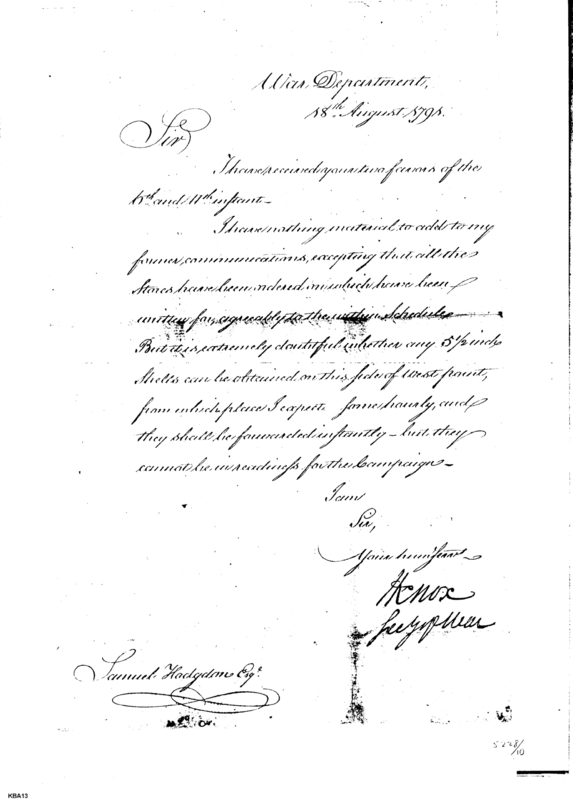 War Department,
18th August 1791.
Sir
I have received your two favors of the
and 11th instant.
I have nothing material to add to my
former communications, excepting that all the
Stores have been ordered on which have been
written for, agreeably to the within Schedule
But it is extremely doubtful whether any 5 1/2 inch
Shells can be obtained on this side of West point,
from which place I expect some hourly, and
they shall be forwarded instantly - but they
cannot be in readiness for the Campaign -
I am
Sir,
Your hum. Servt
HKnox
Secy of War
Samuel Hodgdon Esqr.
KBA13